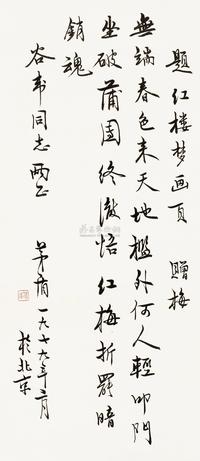 题红楼梦画页 赠梅
無端春色来天地槛外何人轻叩門
坐破蒲团终澈悟红梅折罢暗
销魂
谷韦同志两正
茅盾一九七九年二月
於北京